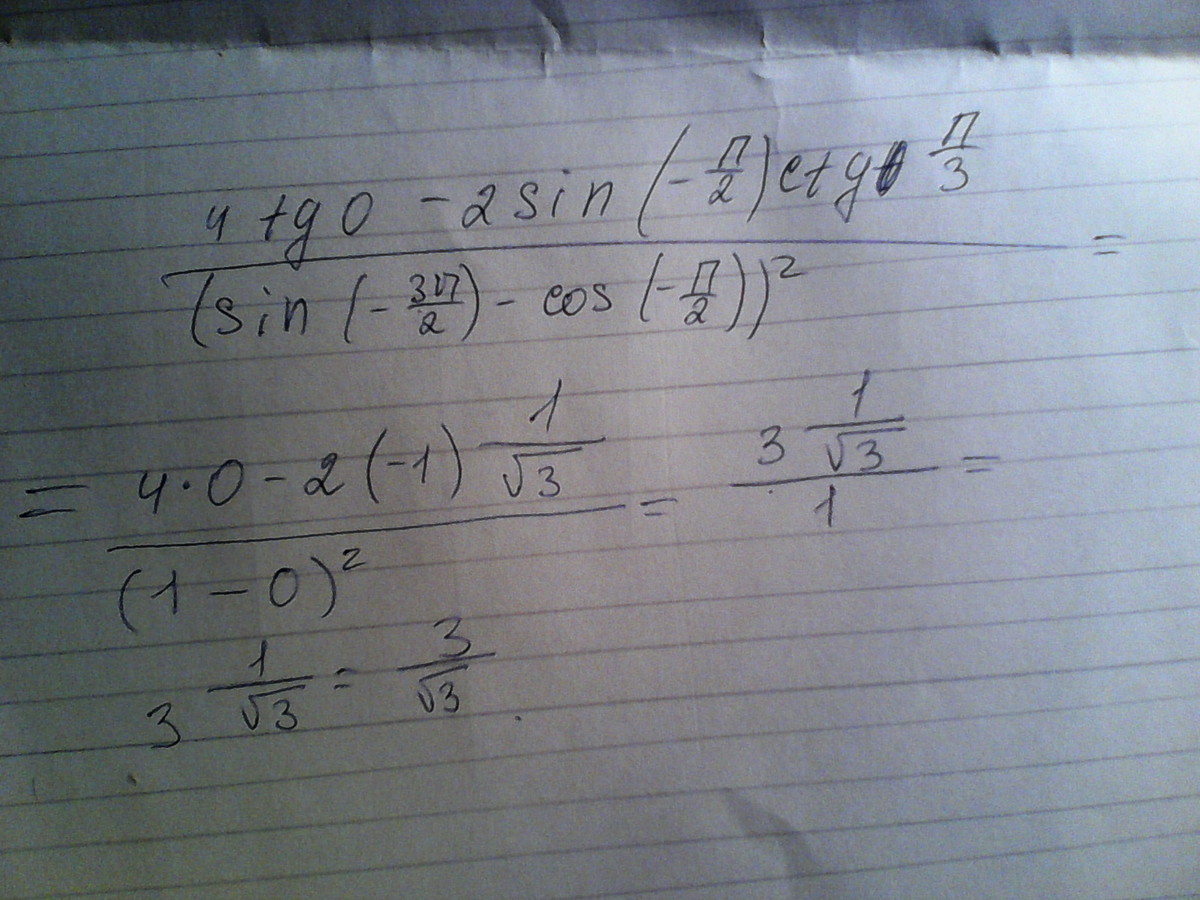 4 tg 0 - 2 sin (-П/2) ctg П/3
(sin (-3П/2) - cos (-П/2))² =
= 4·0 - 2(-1) 1/√3 / (1 - 0)² = 3 1/√3 / 1 =
3 1/√3 = 3/√3